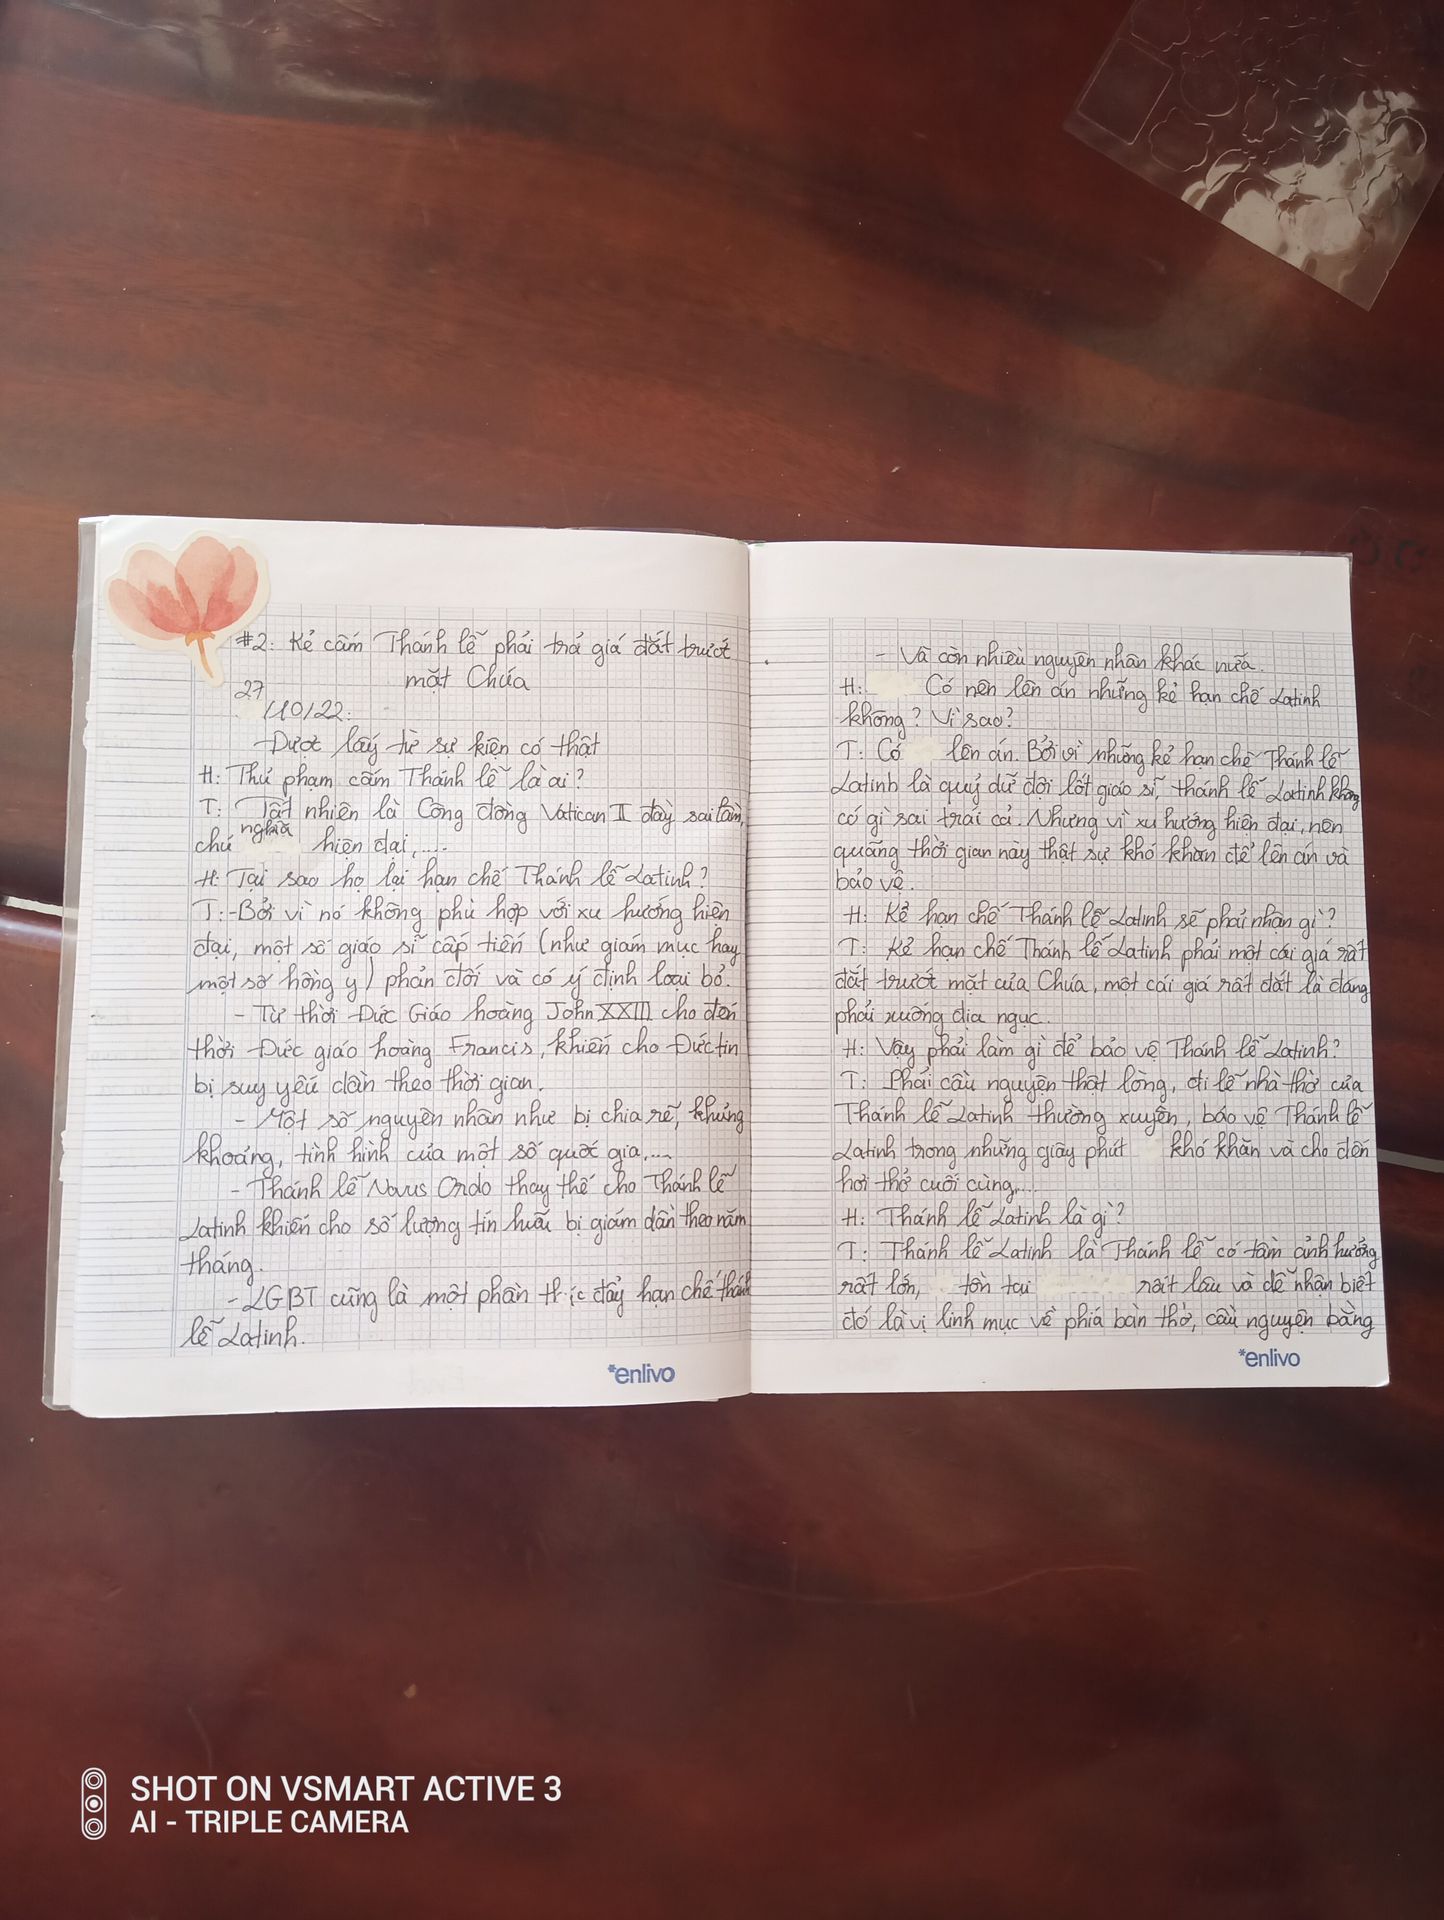 #2: Kẻ cấm Thánh lễ phải trả giá đắt trước
mặt Chúa
27
/10/22:
Được lấy từ sự kiện có thật
H: Thủ phạm cấm Thánh lễ là ai?
T: Tất nhiên là Công đồng Vatican II đầy sai lầm,
chủ nghĩa hiện đại,....
H: Tại sao họ lại hạn chế Thánh lễ Latinh?
T: - Bởi vì nó không phù hợp với xu hướng hiện
đại, một số giáo sĩ cấp tiến (như giám mục hay
một số hồng y) phản đối và có ý định loại bỏ.
- Từ thời Đức Giáo hoàng John XXIII cho đến
thời Đức giáo hoàng Francis, khiến cho Đức tin
bị suy yếu dần theo thời gian.
- Một số nguyên nhân như bị chia rẽ, khủng
khoảng, tình hình của một số quốc gia,....
- Thánh lễ Novus Ordo thay thế cho Thánh lễ
Latinh khiến cho số lượng tín hữu bị giảm dần theo năm
tháng.
- LGBT cũng là một phần thúc đẩy hạn chế thánh
lễ Latinh.
*enlivo
- Và còn nhiều nguyên nhân khác nữa.
H: Có nên lên án những kẻ hạn chế Latinh
không? Vì sao?
T: Có lên án. Bởi vì những kẻ hạn chế Thánh lễ
Latinh là quỷ dữ đội lốt giáo sĩ, thánh lễ Latinh không
có gì sai trái cả. Nhưng vì xu hướng hiện đại, nên
quãng thời gian này thật sự khó khăn để lên án và
bảo vệ.
H: Kẻ hạn chế Thánh lễ Latinh sẽ phải nhận gì?
T: Kẻ hạn chế Thánh lễ Latinh phải một cái giá rất
đắt trước mặt của Chúa, một cái giá rất đắt là đáng
phải xuống địa ngục.
H: Vậy phải làm gì để bảo vệ Thánh lễ Latinh?
T: Phải cầu nguyện thật lòng, đi lễ nhà thờ của
Thánh lễ Latinh thường xuyên, bảo vệ Thánh lễ
Latinh trong những giây phút khó khăn và cho đến
hơi thở cuối cùng....
H: Thánh lễ Latinh là gì?
T: Thánh lễ Latinh là Thánh lễ có tầm ảnh hưởng
rất lớn, tồn tại rất lâu và dễ nhận biết
đó là vị linh mục về phía bàn thờ, cầu nguyện bằng
*enlivo
SHOT ON VSMART ACTIVE 3
AI - TRIPLE CAMERA